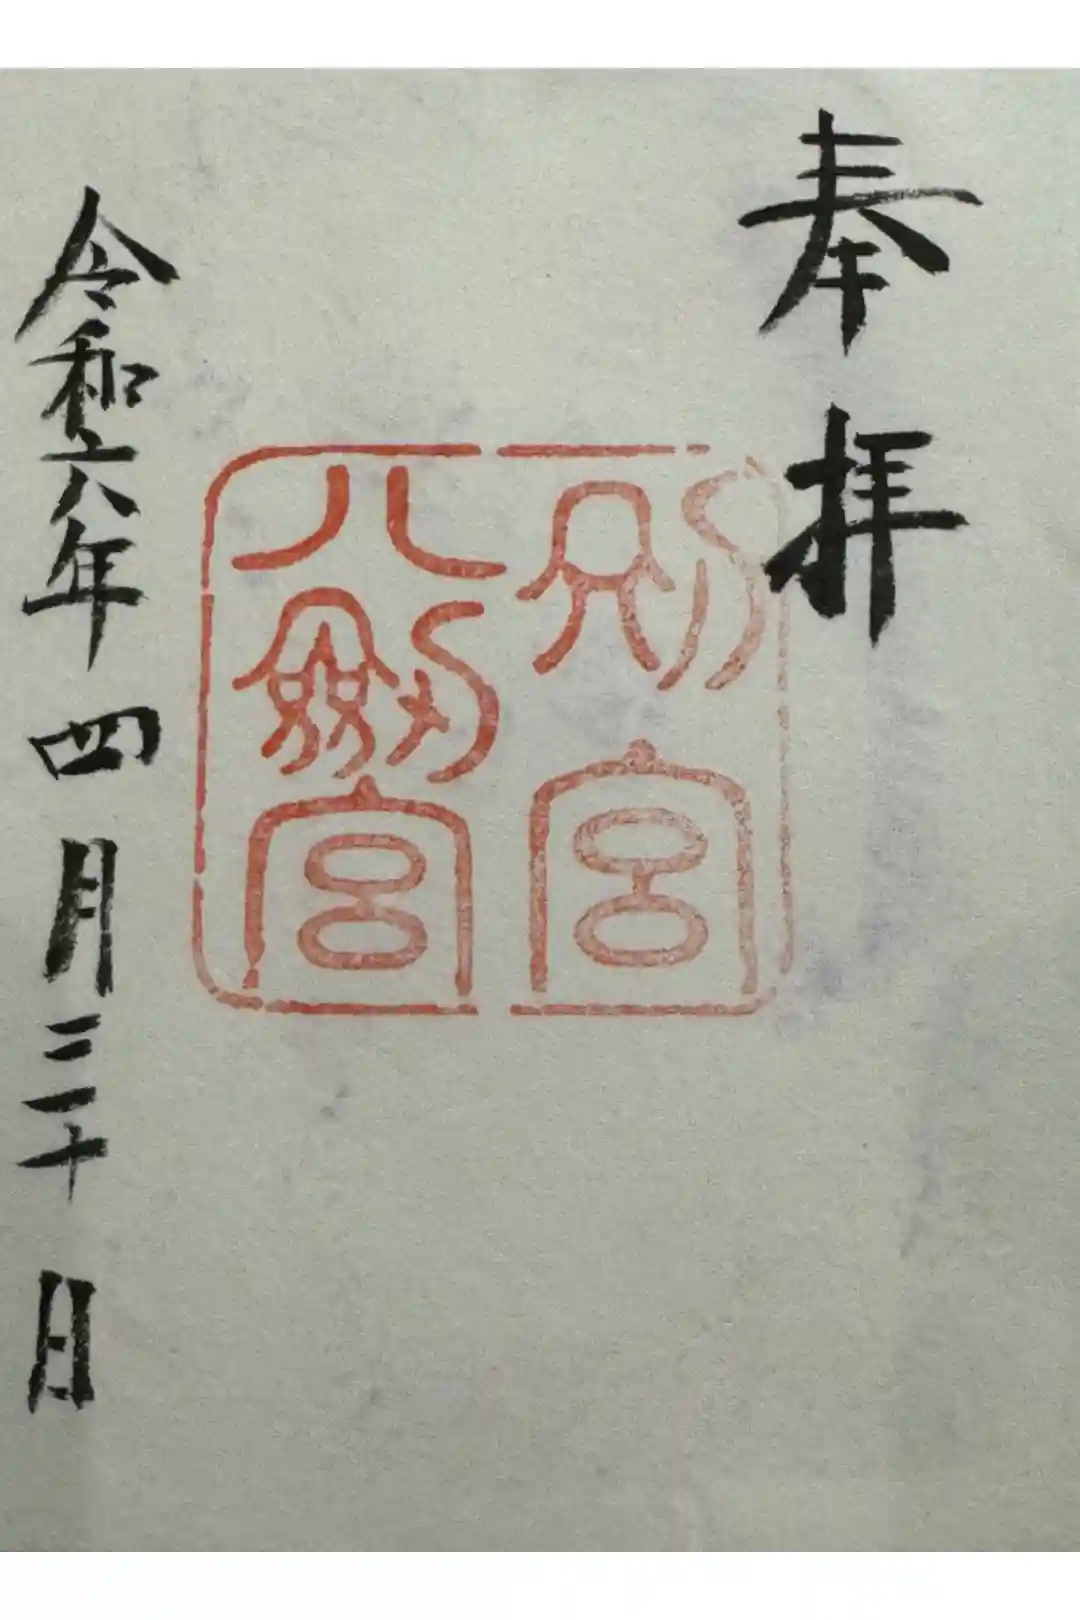 奉拝
別宮
八劔宮
令和六年四月三十日